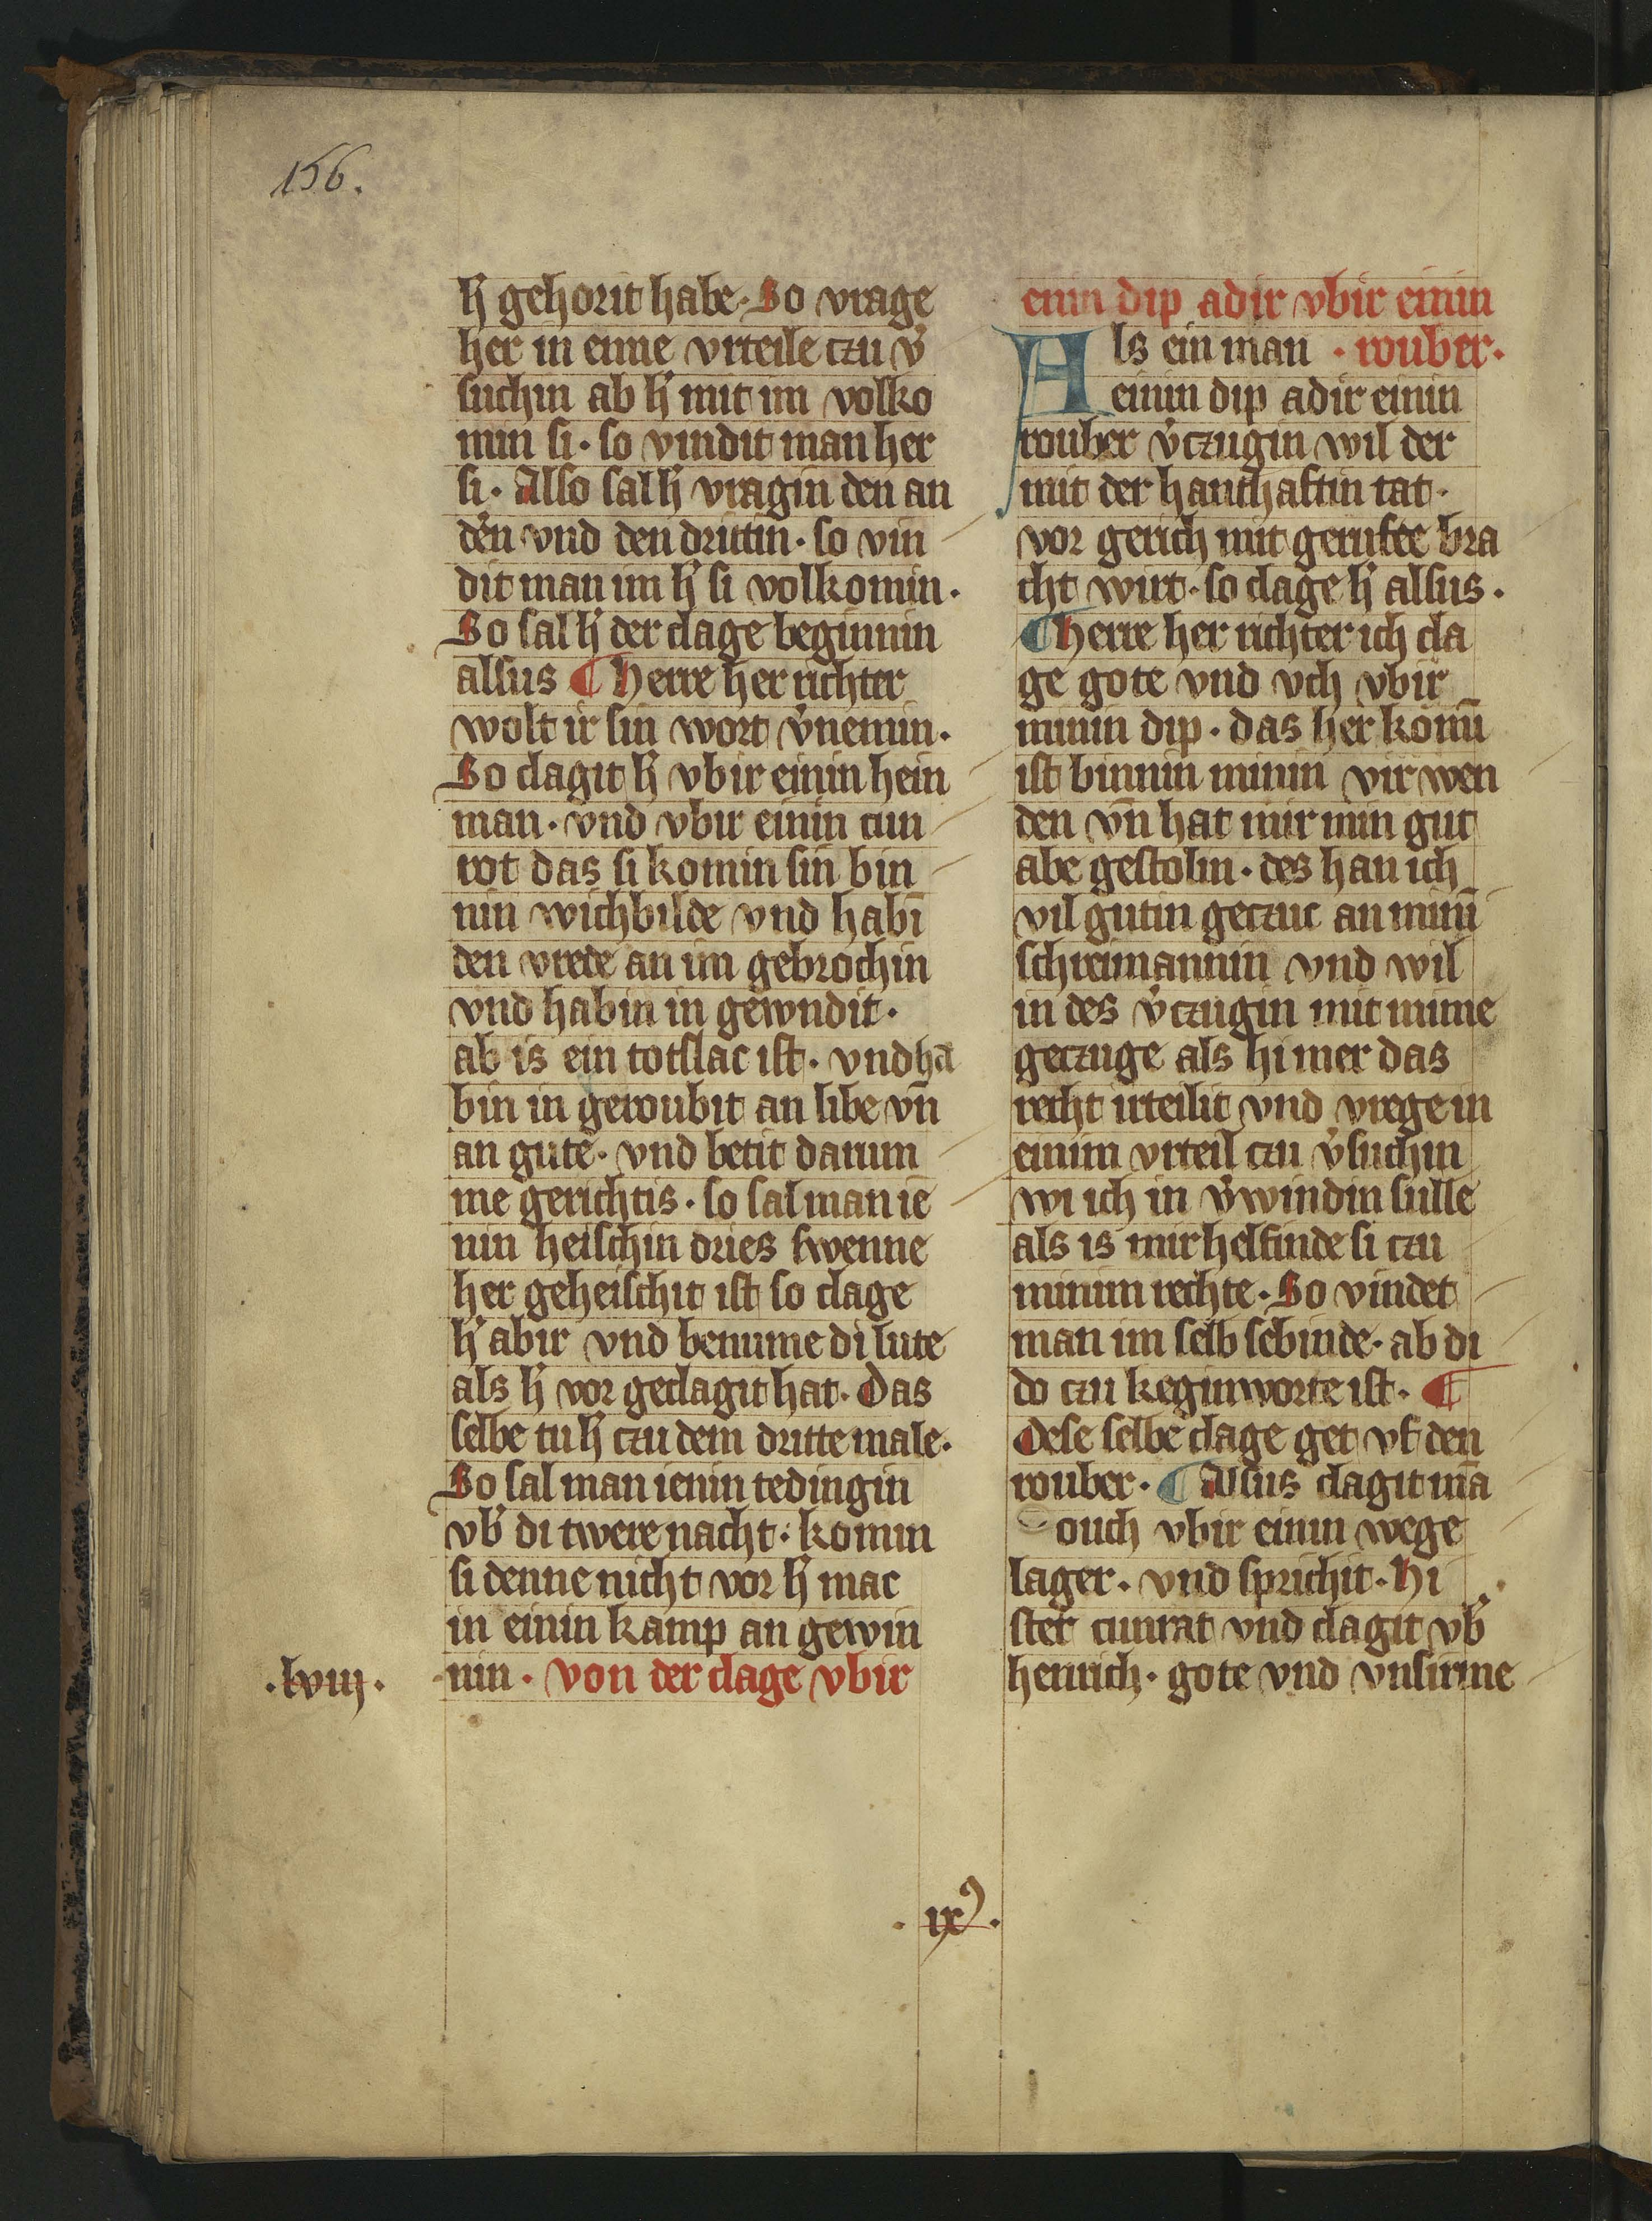 156.
h̓ gehorit habe. So vrage
her in eime vrteile czu v̓
suchin ab h̓ mit im volko
min si. so vindit man her
si. Also sal h̓ vragin den an
d̓en vnd den drittin. so vin
dit man im h̓ si volkomin.
So sal h̓ der clage beginnin
alsus ¶ Herre her richter
wolt ir sin wort v̓nemin.
So clagit h̓ vbir einin hein
man. vnd vbir einin cun
rot das si komin sin bin
nin wichbilde vnd habī
den vrede an im gebrochin
vnd habin in gewndit.
ab is ein totslac ist. vnd ha
bin in geroubit an libe vn̄
an gute. vnd betit darum
me gerichtis. so sal man ie
nin heischin dries swenne
her geheischit ist so clage
h̓ abir vnd benume di lute
als h̓ vor geclagit hat. Das
selbe tu h̓ czu dem dritte male.
So sal man ienin tedingin
vb̓ di twere nacht. komin
si denne nicht vor h̓ mac
in einin kamp an gewin
.lviij.
nin. von der clage vbir
einin dip adir vbir einin
Als ein man . rouber.
einin dip adir einin
rouber v̓czugin wil der
mit der hanthaftin tat.
vor gerich mit gerufte bra
cht wirt. so clage h̓ alsus.
¶ Herre her richter ich cla
ge gote vnd vch vbir
minin dip. das her komī
ist binnin minin vir wen
den vn̄ hat mir min gut
abe gestolin. des han ich
vil gutin geczuc an minī
schreimannin vnd wil
in des v̓czugin mit mime
geczuge als hi mer das
recht irteilit vnd vrege in
einim vrteil czu v̓suchin
wi ich in v̓windin sulle
als is mir helfinde si czu
minim rechte. So vindet
man im selb sebinde. ab di
do czu keginworte ist. ¶
Dese selbe clage get vf den
rouber. ¶ Alsus clagit mā
ouch vbir einin wege
lager. vnd sprichit. Hi
stet cunrat vnd clagit vb̓
henrich. gote vnd vnsirme
. ixꝰ.